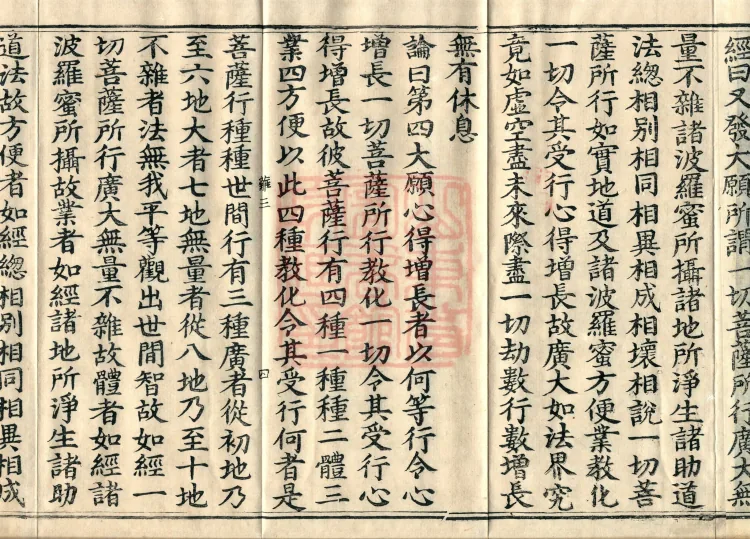 經曰又發大願所謂一切菩薩所行廣大無
量不雜諸波羅蜜所攝諸地所淨生諸助道
法總相別相同相異相成相壞相說一切菩
薩所行如實地道及諸波羅蜜方便業教化
一切令其受行心得增長故廣大如法界究
竟如虛空盡未來際盡一切劫數行數增長
無有休息
論曰第四大願心得增長者以何等行令心
增長一切菩薩所行教化一切令其受行心
得增長故彼菩薩行有四種一種種二體三
業四方便以此四種教化令其受行何者是
菩薩行種種世間行有三種廣者從初地乃
至六地大者七地無量者從八地乃至十地
不雜者法無我平等觀出世間智故如經一
切菩薩所行廣大無量不雜故體者如經諸
波羅蜜所攝故業者如經諸地所淨生諸助
道法故方便者如經總相別相同相異相成
三
四